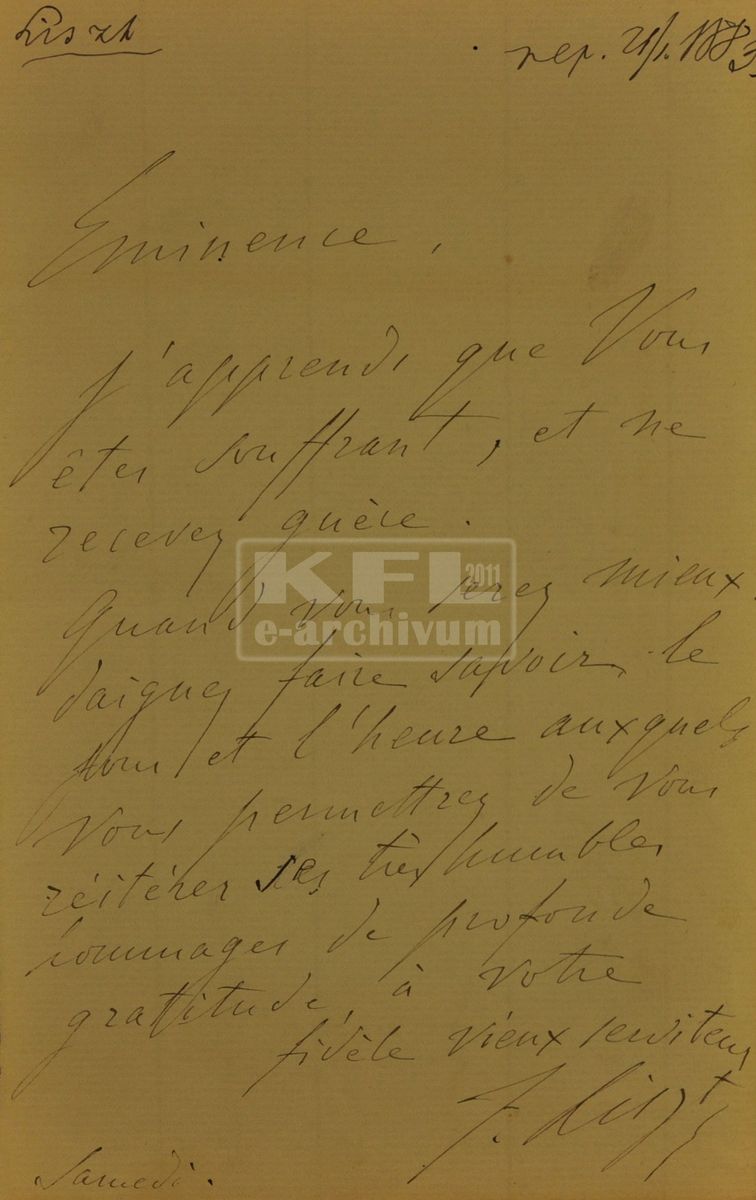 Liszt
rep. 21/1. 1883.
Eminence,
j'apprends que Vous
êtes souffrant, et ne
recevez guère.
Quand vous serez mieux,
daignez faire savoir le
jour et l'heure auxquels
Vous permettrez de Vous
réitérer ses très humbles
hommages de profonde
gratitude, à votre
fidèle vieux serviteur
F. Liszt
Samedi.
KFL 2011
e-archivum